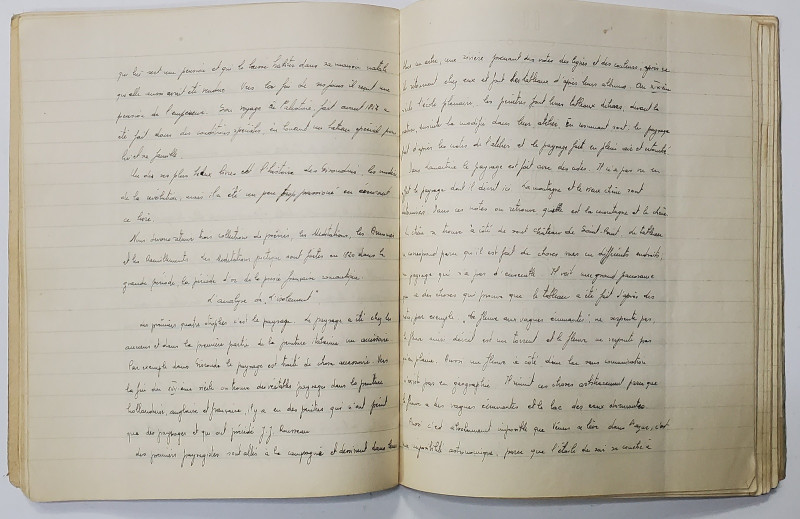 qui lui sert une pension et qui la laisse habiter dans sa maison natale
qu'elle aurait été vendue. Vers la fin de ses jours il reçut une
pension de l'empereur. Son voyage en Palestine, fait avant 1848 a
été fait dans des conditions spéciales, en louant un bateau spécial pour
lui et sa famille.
Un des ses plus beaux livres est l'histoire des Girondins, les
de la révolution, mais il a été un peu trop passionné en
ce livre
Nous avons trois collections de poésies, les Méditations, les Harmonies
et les Recueillements. Les Méditations poétiques sont faites en 1820 dans la
grande période, la période d'or de la poésie française romantique.
L'analyse de "L'isolement"
Les premières quatre strophes c'est le paysage. Le paysage a été chez les
anciens et dans la première partie de la peinture italienne un accessoire
Par exemple dans le paysage est traité de chose accessoire. Vers
la fin du XVI ème siècle on trouve des véritables paysages dans la peinture
hollandaise, anglaise et française, il y a eu des peintres qui n'ont peint
que des paysages et qui ont précédé J.J. Rousseau
Les premiers paysagistes sont allés à la campagne et dessinaient dans
un arbre, une rivière prenant des notes des lignes et des couleurs, après ça
retournent chez eux et font des tableaux d'après leurs albums. Au
siècle l'école pleinairs les peintres font leurs tableaux dehors, devant la
nature, ensuite la modifie dans leur atelier. En commençant sont les paysages
fait d'après les notes de l'atelier et le paysage fait en plein air et retouché
Dans Lamartine le paysage est fait avec des notes. Il n'a pas vu en
effet le paysage dont il décrit ici. La montagne et le vieux chêne sont
Dans ces notes on retrouve quelle est la montagne et le chêne.
Le chêne se trouve à côté de son château de Saint-Point. Ce tableau
parce qu'il est fait de choses vues en différents endroits,
paysage qui n'a pas d'ensemble. Il veut une grand panorama
a des choses qui prouve que le tableau a été fait d'après des
par exemple, "Le fleuve aux vagues écumantes", ne serpente pas,
le fleuve ainsi décrit est un torrent et le fleuve ne serpente pas
en plaine. Aussi un fleuve à côté d'un lac sans communication
n'existe pas en géographie. Il réunit ces choses artistiquement parce que
le fleuve a des vagues écumantes et le lac des eaux dormantes.
Aussi c'est absolument impossible que Vénus se lève dans l'azur, c'est
une impossibilité astronomique, parce que l'étoile du soir se couche à